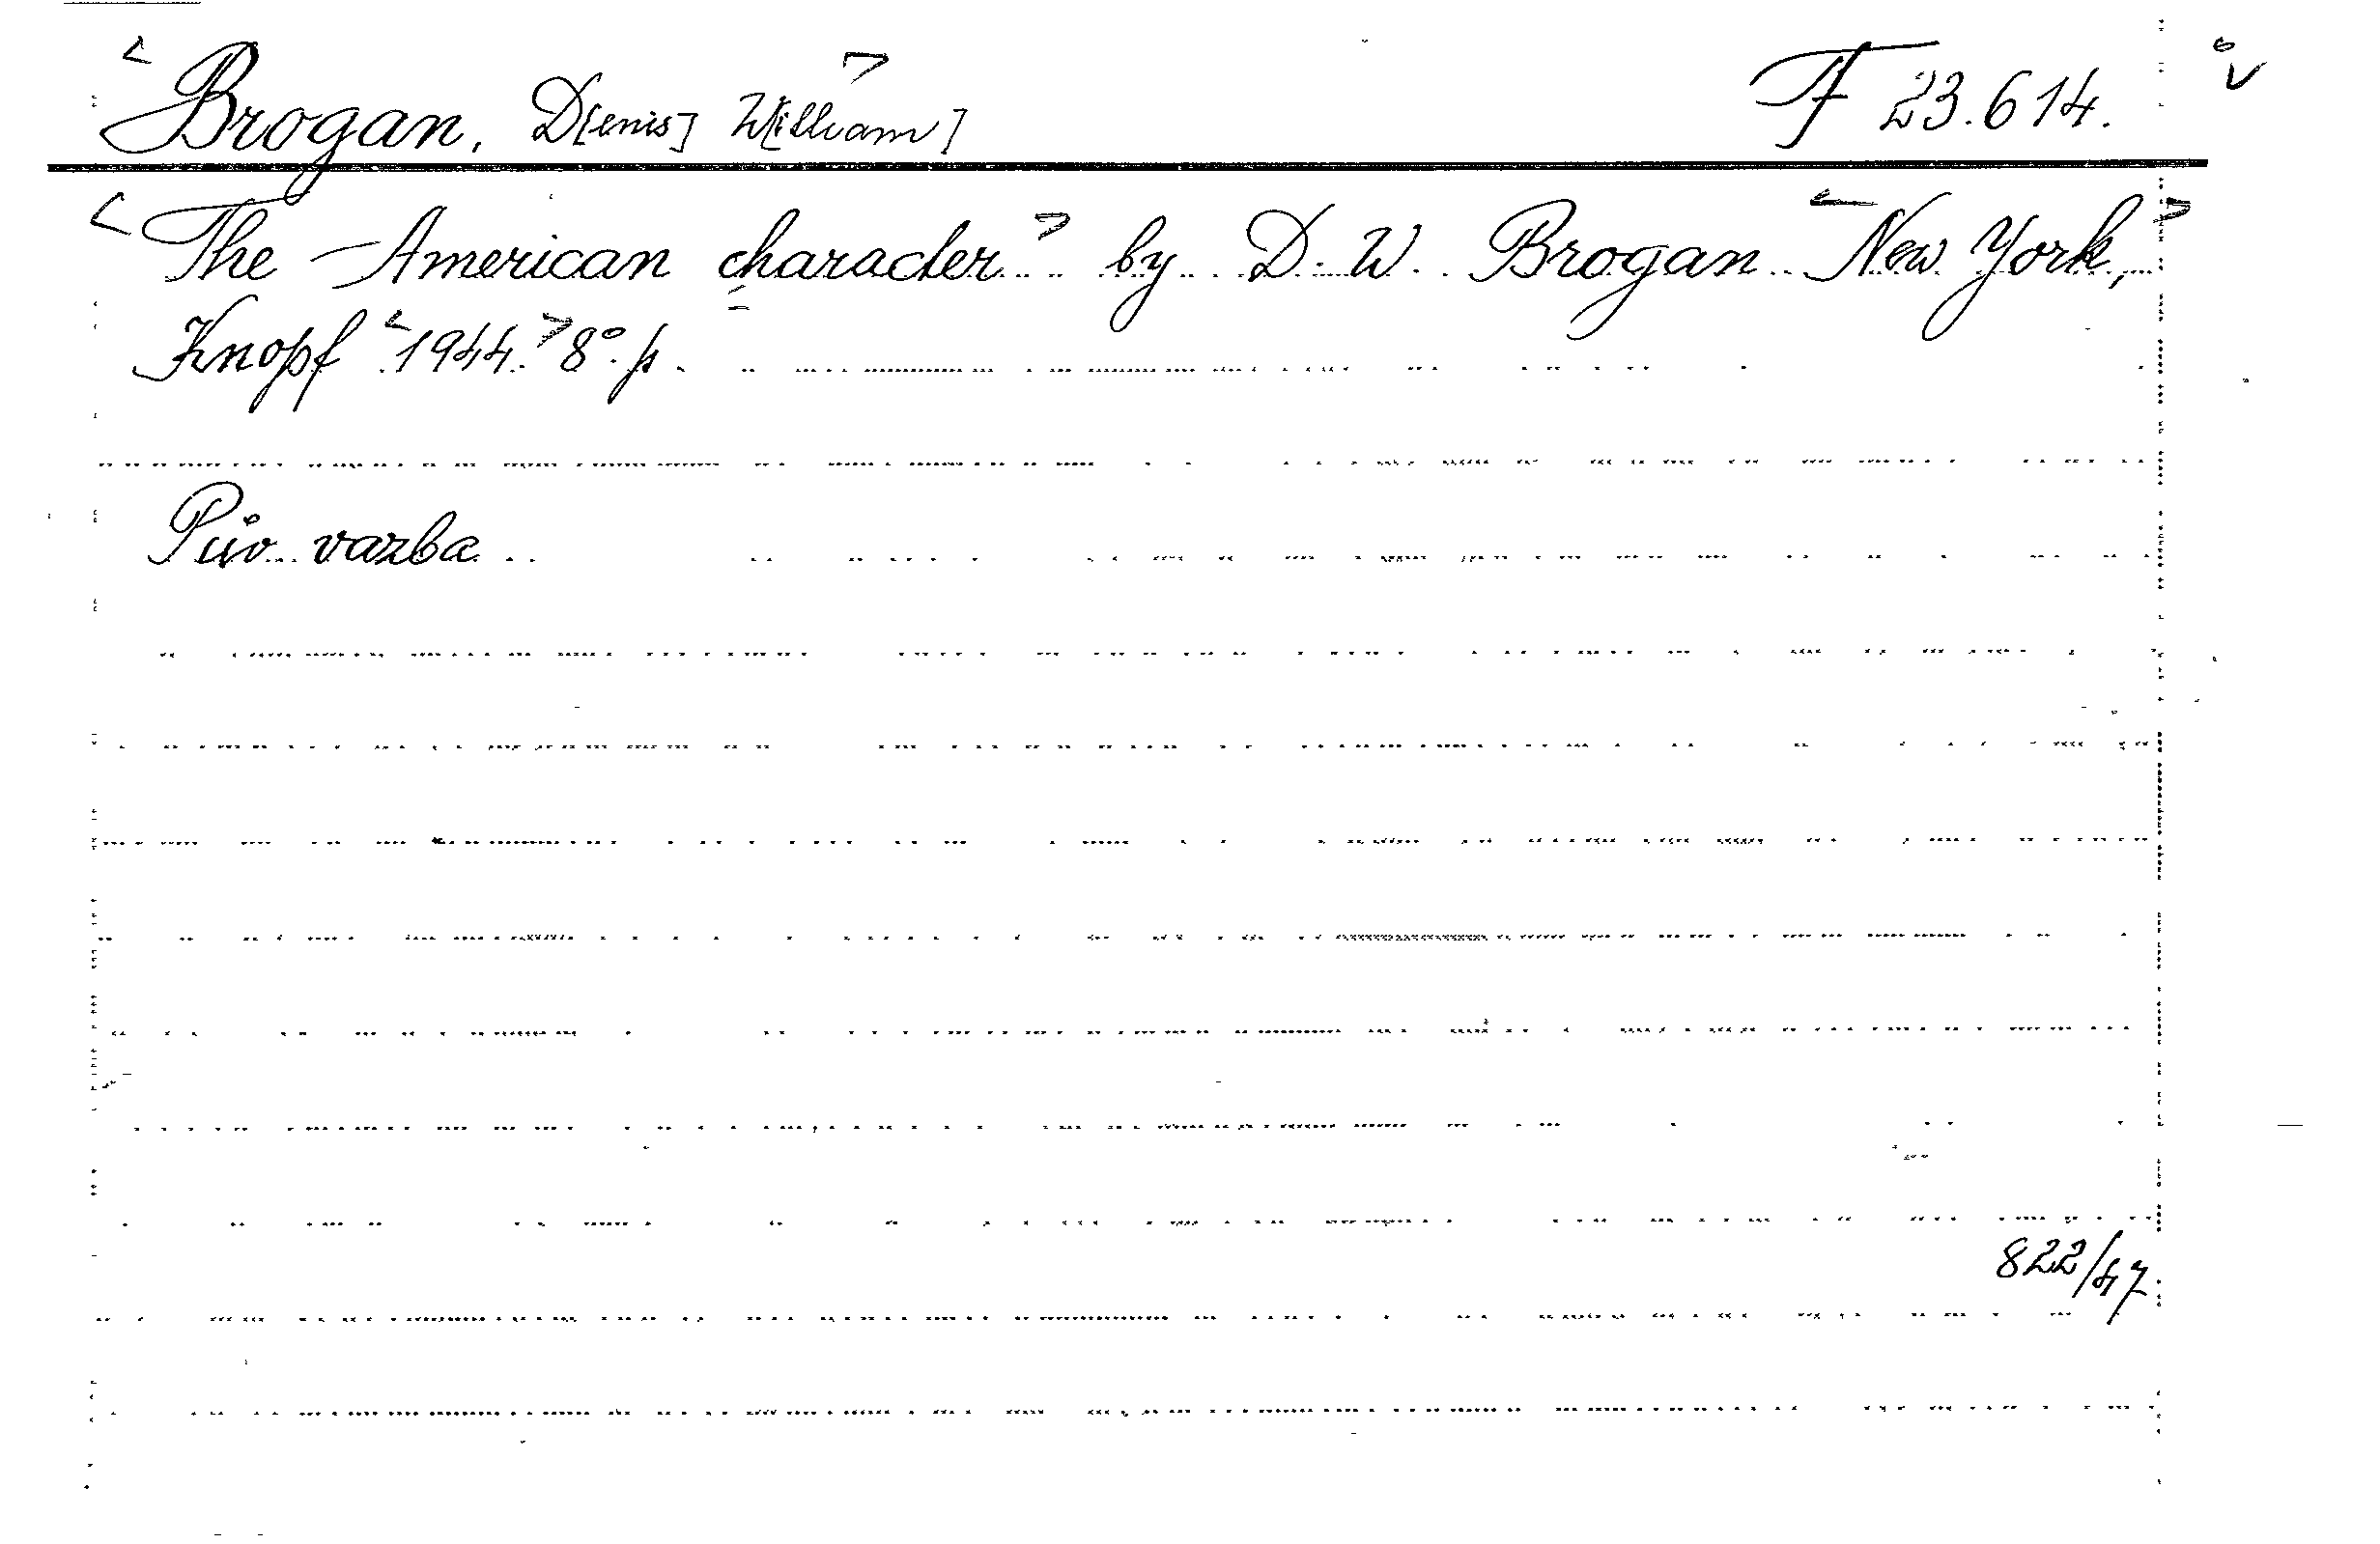 <Brogan, D[enis] W[illiam]> F 23.614.
<The American character> by D. W. Brogan <New York,>
Knopf <1944.> 8°. p.
Pův. vazba
822/47